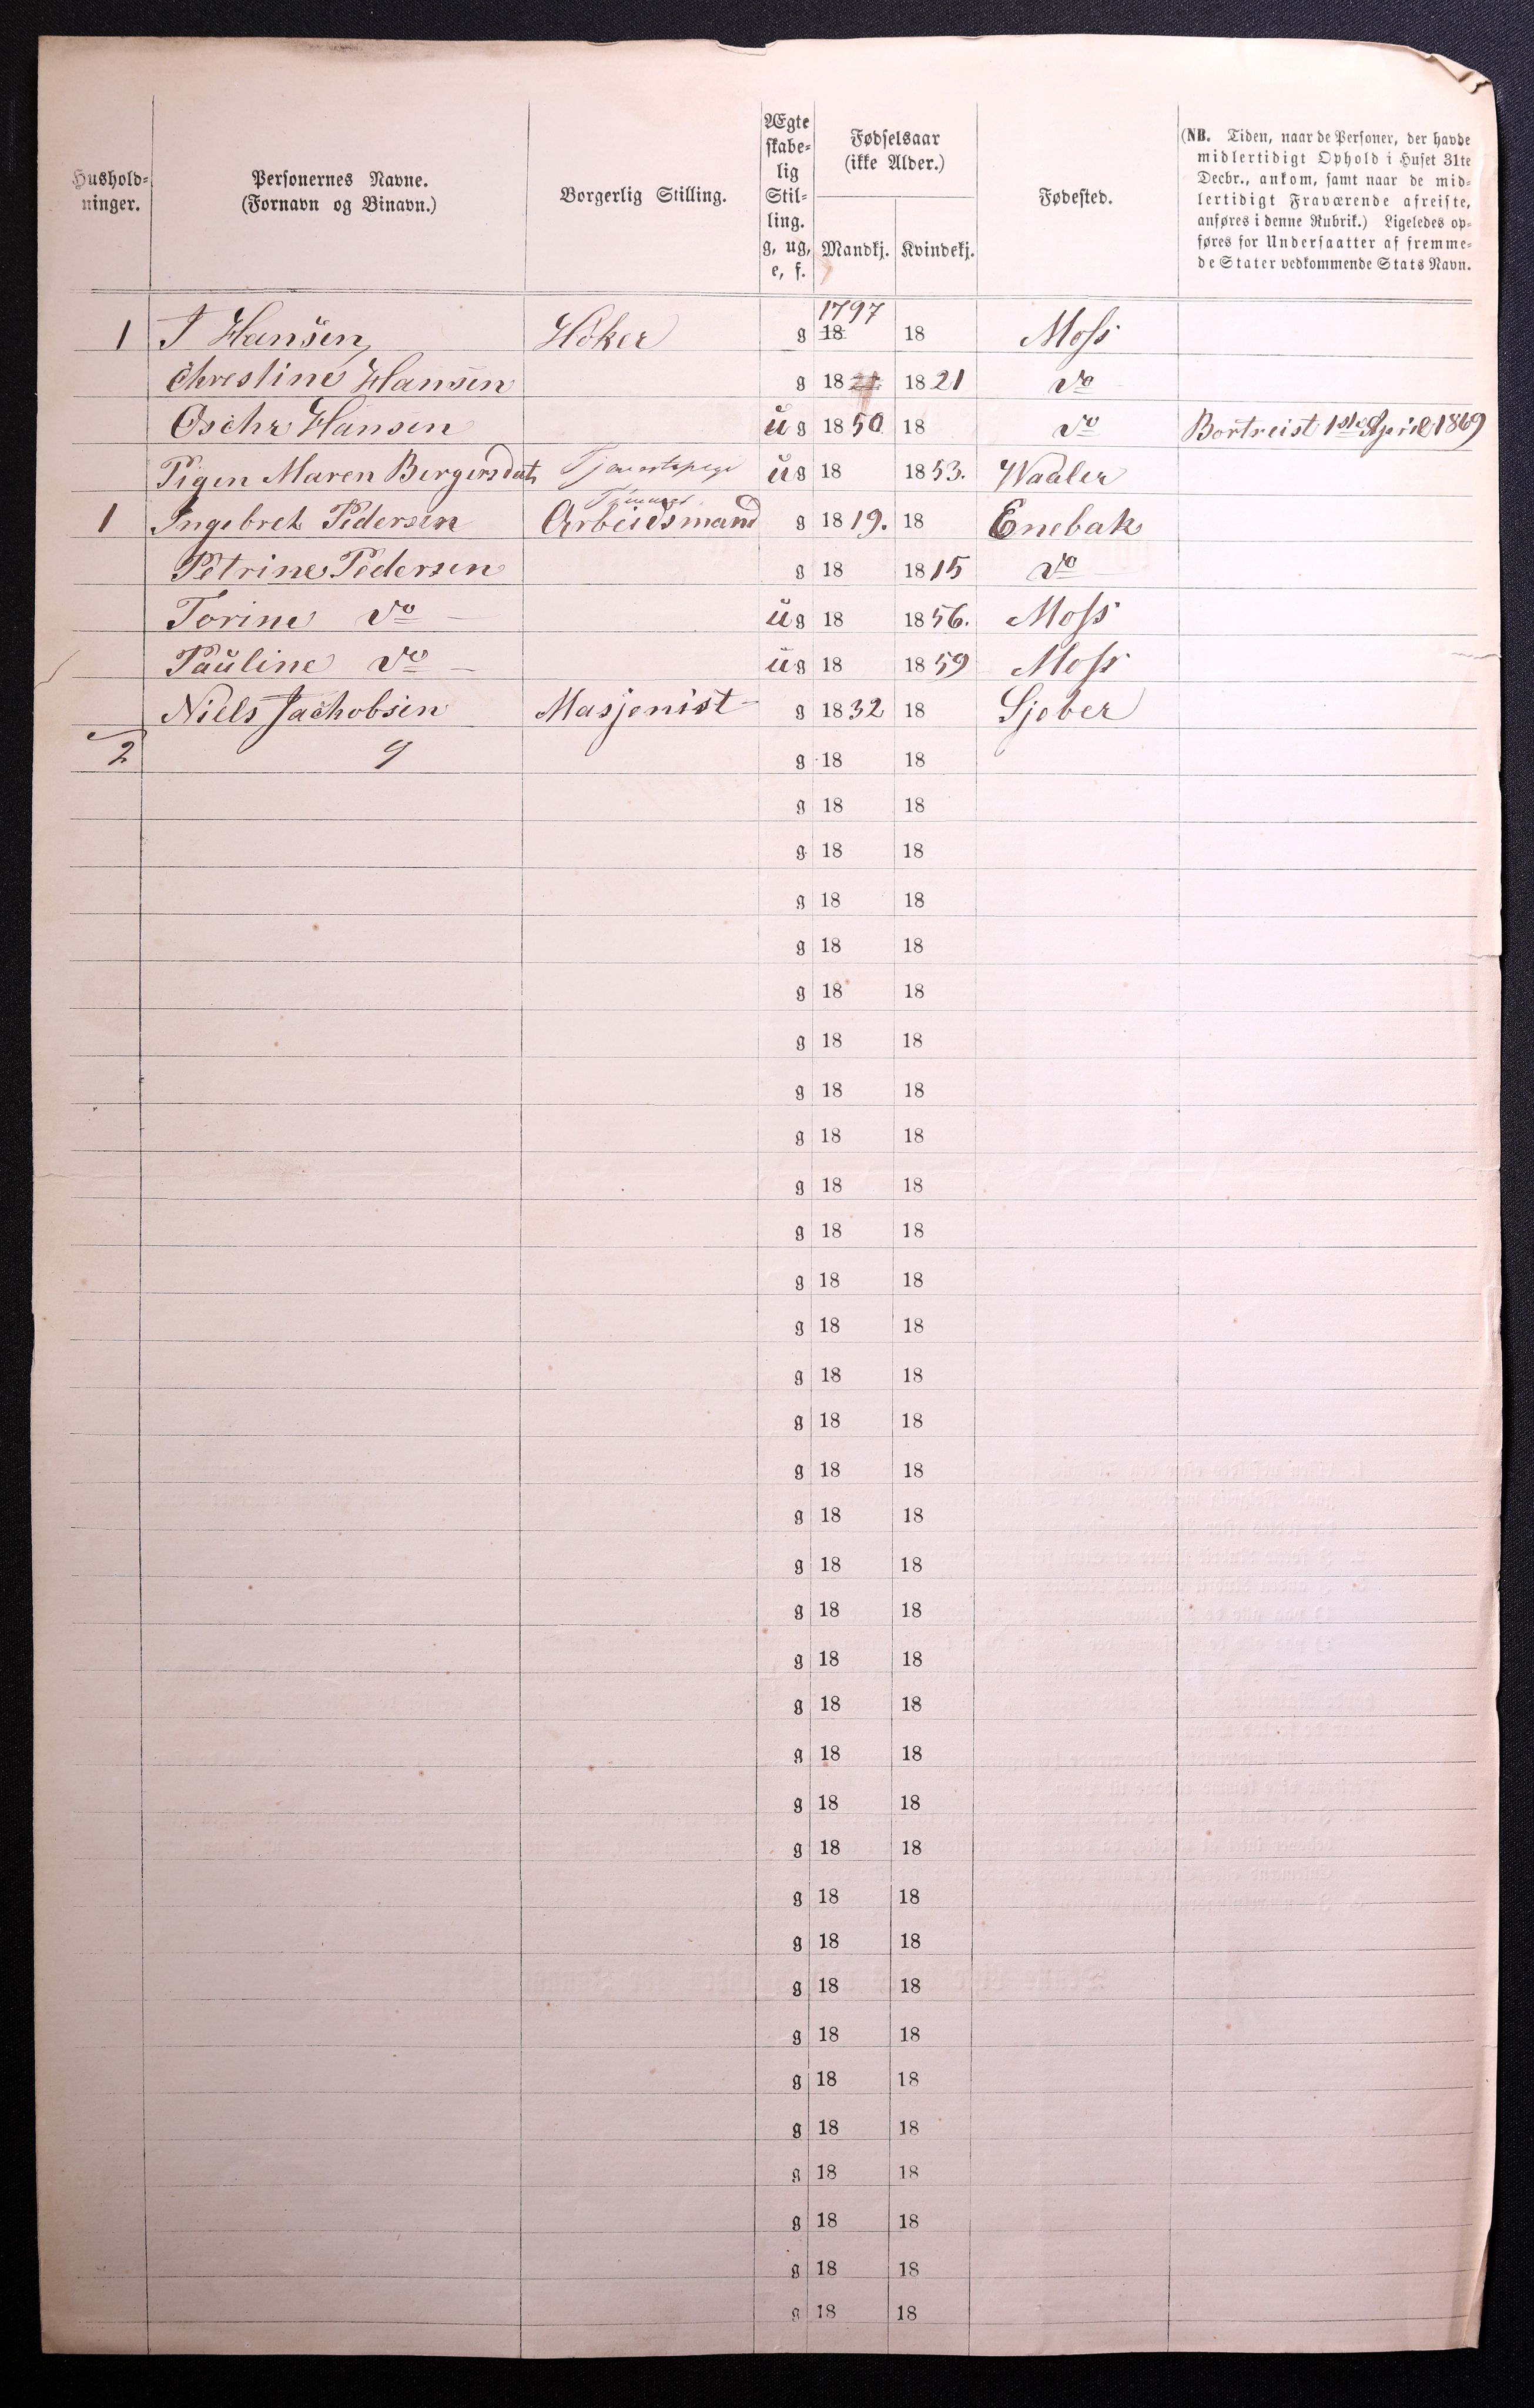 Hushold-
ninger.
Personernes Navne.
(Fornavn og Binavn.)
Borgerlig Stilling.
Ægte
skabe-
lig
Stil-
ling.
g, ug,
e, f.
Fødselsaar
(ikke Alder.)
Mandkj. Kvindekj.
Fødested.
(NB. Tiden, naar de Personer, der havde
midlertidigt Ophold i Huset 31te
Decbr., ankom, samt naar de mid-
lertidigt Fraværende afreiste,
anføres i denne Rubrik.) Ligeledes op-
føres for Undersaatter af fremme-
de Stater vedkommende Stats Navn.
1 J Hansen Höker g 1797 18 18 Moss
Chrestine Hansen g 18 21 18 21 do
Oschr Hansen ug 18 50 18 do Bortreist 1ste April 1869
Pigen Maren Bergersdat Tjenestepige ug 18 18 53. Waaler
1 Ingebret Pedersen Arbeidsmand g 18 19. 18 Enebak
Petrine Pedersen g 18 18 15 do
Torine do ug 18 18 56. Moss
Pauline do ug 18 18 59 Moss
Niels Jachobsen Masjenist g 18 32 18 Sjeber
2 9 g 18 18
g 18 18
g 18 18
g 18 18
g 18 18
g 18 18
g 18 18
g 18 18
g 18 18
g 18 18
g 18 18
g 18 18
g 18 18
g 18 18
g 18 18
g 18 18
g 18 18
g 18 18
g 18 18
g 18 18
g 18 18
g 18 18
g 18 18
g 18 18
g 18 18
g 18 18
g 18 18
g 18 18
g 18 18
g 18 18
g 18 18
g 18 18
g 18 18
g 18 18